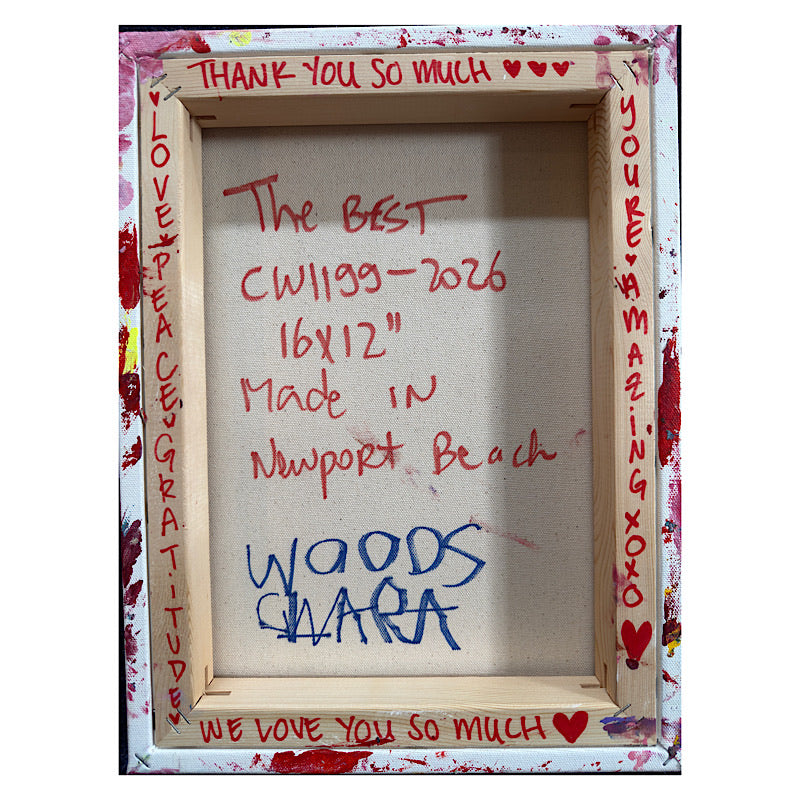 THANK YOU SO MUCH ♥♥♥
♥LOVE♥PEACE♥GRATITUDE♥
YOURE♥AMAZING XOXO♥
The BEST
CW1199-2026
16x12"
Made IN
Newport Beach
WOODS
CWARA
WE LOVE YOU SO MUCH ♥